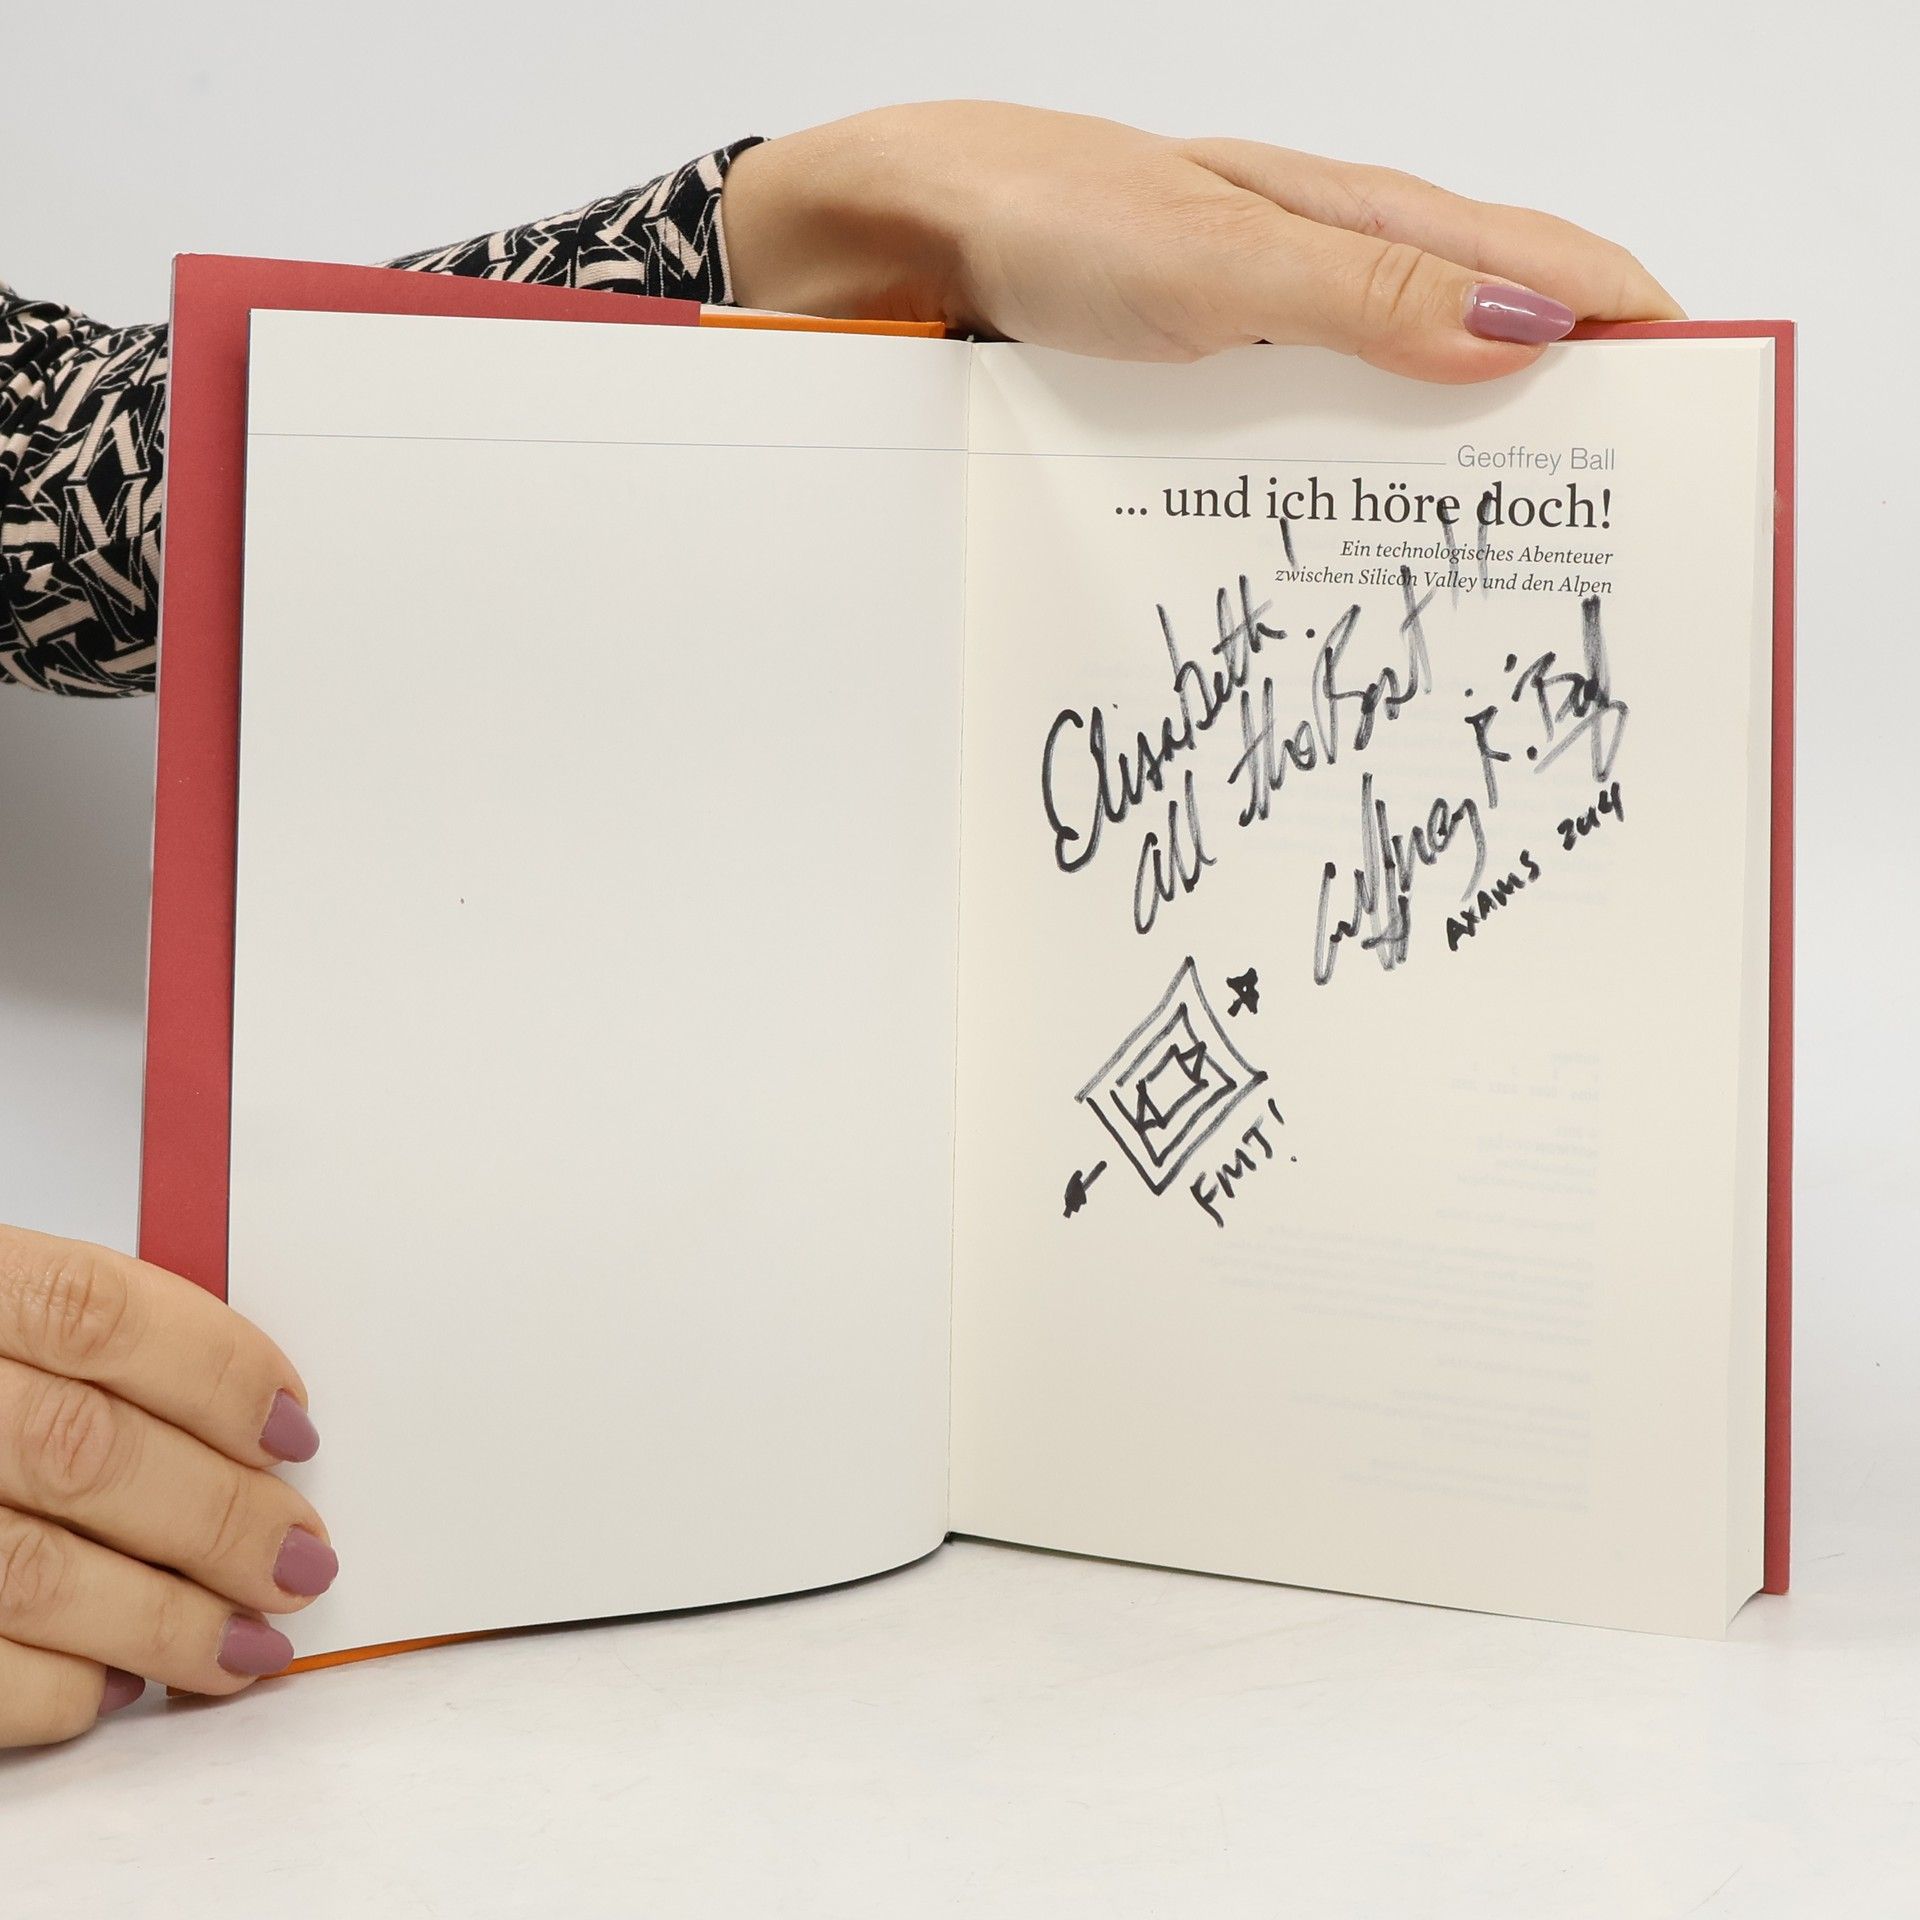 Geoffrey Ball
... und ich höre doch!
Ein technologisches Abenteuer
zwischen Silicon Valley und den Alpen
Elisabeth!
All the Best!!
Geoffrey R. Ball
AXAMS 2014
FMT!